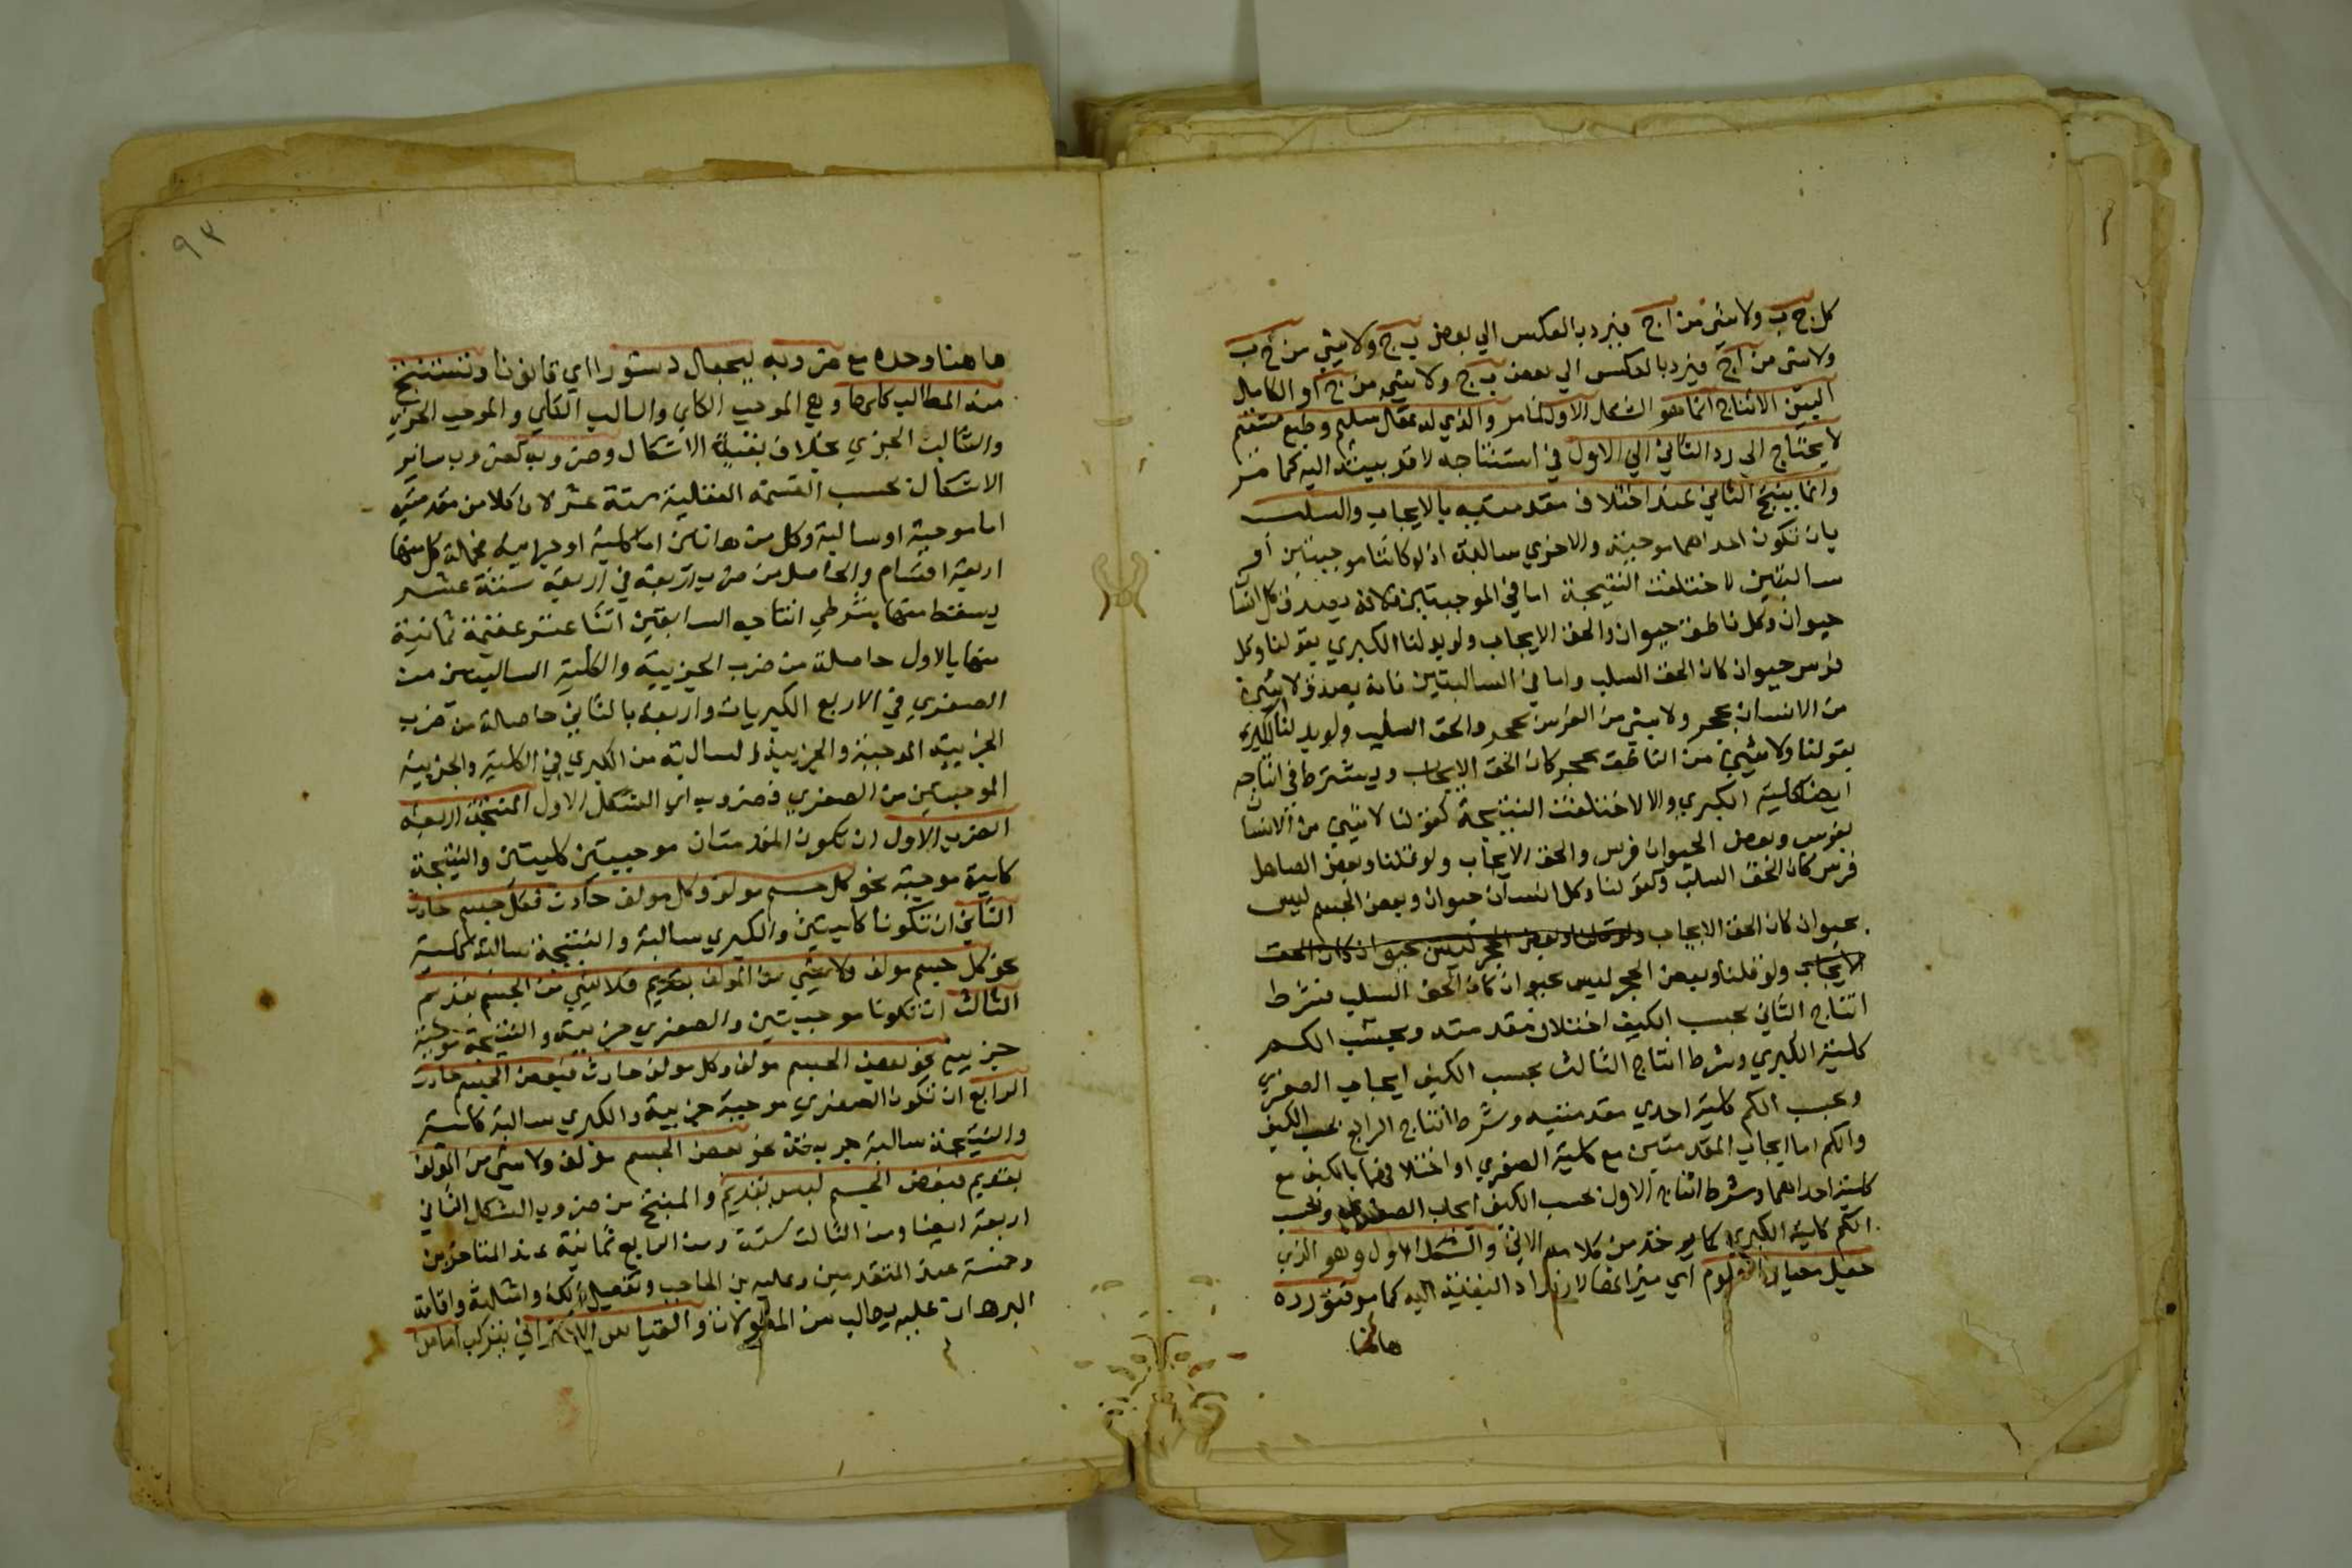 كل ج ب ولا شي من ا ج فيرد بالعكس الي بعض ب ج ولا شي من ج ب
ولا شي من ا ج فيرد بالعكس الي بعض ب ج ولا شي من ج ا والكامل
البين الانتاج انما هو الشكل الاول لما مر والذي له عقل سليم وطبع مستقيم
لا يحتاج الى رد الثاني الي الاول في استنتاجه لا قربيته اليه كما مر
وانما ينتج الثاني عند اختلاف مقدمتيه بالايجاب والسلب
بان تكون احداهما موجبة والاخري سالبة اذ لو كانتا موجبتين او
سالبتين لاختلفت النتيجة اما في الموجبتين فلانه يصدق كل انسان
حيوان وكل ناطق حيوان والحق الايجاب ولو بدلنا الكبري بقولنا وكل
فرس حيوان كان الحق السلب واما في السالبتين فانه يصدق لا شي
من الانسان بحجر ولا شي من الفرس بحجر والحق السلب ولو بدلنا الكبري
بقولنا ولا شي من الناطق بحجر كان الحق الايجاب ويشترط في انتاجه
ايضا كلية الكبري والا لاختلفت النتيجة كقولنا لا شي من الانسان
بفرس وبعض الحيوان فرس والحق الايجاب ولو قلنا وبعض الصاهل
فرس كان الحق السلب وكقولنا وكل انسان حيوان وبعض الجسم ليس
بحيوان كان الحق الايجاب ولو قلنا وبعض الحجر ليس بحيوان كان الحق
الايجاب ولو قلنا وبعض الحجر ليس بحيوان كان الحق السلب فشرط
انتاج الثاني بحسب الكيف اختلاف مقدمتيه وبحسب الكم
كلية الكبري وشرط انتاج الثالث بحسب الكيف ايجاب الصغري
وبحسب الكم كلية احدي مقدمتيه وشرط انتاج الرابع بحسب الكيف
والكم اما ايجاب المقدمتين مع كلية الصغري او اختلافهما بالكيف مع
كلية احداهما وشرط انتاج الاول بحسب الكيف ايجاب الصغري وبحسب
الكم كلية الكبري كما يوخذ من كلامه الاتي والشكل الاول وهو الذي
جعل معيار العلوم اي ميزانها لارتداد البقية اليه كما مر فنورده
هاهنا
٩٣
هاهنا وحده مع ضروبه ليجعل دستورا اي قانونا ونستنتج
منه المطالب كلها وهي الموجب الكلي والسالب الكلي والموجب الجزي
والسالب الجزي بخلاف بقية الاشكال وضروبه كضروب سائر
الاشكال بحسب القسمة العقلية ستة عشر لان كلا من مقدمتيه
اما موجبة او سالبة وكل من هاتين اما كلية او جزيية فجملة كل منهما
اربعة اقسام والحاصل من ضرب اربعة في اربعة ستة عشر
يسقط منها بشرطي انتاجه السابقين اثنا عشر عقيمة ثمانية
منها بالاول حاصلة من ضرب الجزيية والكلية السالبتين من
الصغري في الاربع الكبريات واربعة بالثاني حاصلة من ضرب
الجزيية الموجبة والجزيية السالبة من الكبري في الكلية والجزيية
الموجبتين من الصغري فضروب اي الشكل الاول المنتجة اربعة
الضرب الاول ان تكون المقدمتان موجبتين كليتين والنتيجة
كلية موجبة نحو كل جسم مولف وكل مولف حادث فكل جسم حادث
الثاني ان تكونا كليتين والكبري سالبة والنتيجة سالبة كلية
نحو كل جسم مولف ولا شي من المولف بقديم فلا شي من الجسم بقديم
الثالث ان تكونا موجبتين والصغري جزيية والنتيجة موجبة
جزيية نحو بعض الجسم مولف وكل مولف حادث فبعض الجسم حادث
الرابع ان تكون الصغري موجبة جزيية والكبري سالبة كلية
والنتيجة سالبة جزيية نحو بعض الجسم مولف ولا شي من المولف
بقديم فبعض الجسم ليس بقديم والمنتج من ضروب الشكل الثاني
اربعة ايضا ومن الثالث ستة ومن الرابع ثمانية عند المتاخرين
وخمسة عند المتقدمين وعليه بن الحاجب وتفصيل ذلك وامثلته واقامة
البرهان عليه يطلب من المطولات والقياس الاقتراني يتركب اما من